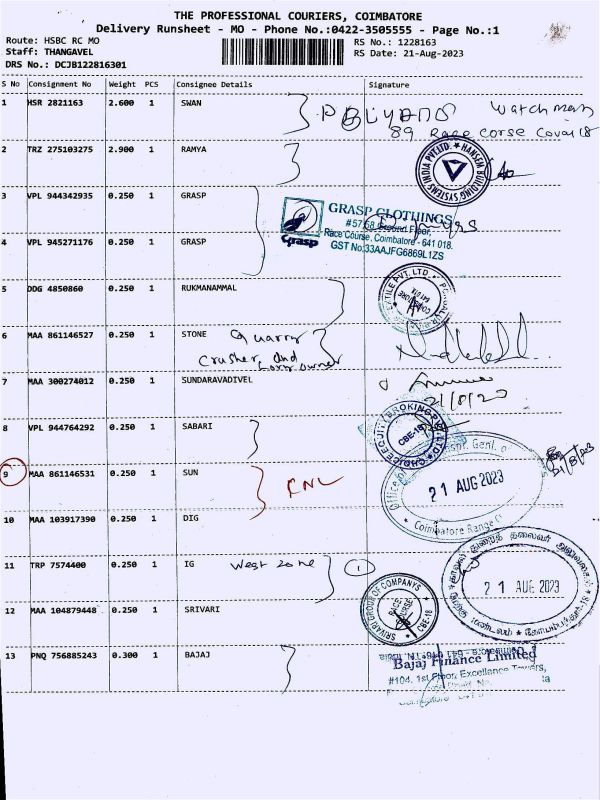 THE PROFESSIONAL COURIERS, COIMBATORE
Delivery Runsheet - MO - Phone No.:0422-3505555 - Page No.:1
Route: HSBC RC MO
Staff: THANGAVEL
DRS No.: DCJB122816301
RS No.: 1228163
RS Date: 21-Aug-2023
S No Consignment No Weight PCS Consignee Details Signature
1 HSR 2821163 2.600 1 SWAN
Watchman
89 Race Corse
2 TRZ 275103275 2.900 1 RAMYA
HANSEN BUILDING SYSTEMS INDIA PVT.LTD.
3 VPL 944342935 0.250 1 GRASP
Grasp
GRASP CLOTHINGS
#57,58 Ground Floor,
Race Course, Coimbatore - 641 018.
GST No:33AAJFG6869L1ZS
4 VPL 945271176 0.250 1 GRASP
5 DDG 4850860 0.250 1 RUKMANAMMAL
6 MAA 861146527 0.250 1 STONE Quarry
Crusher and
Lorry owner
7 MAA 300274012 0.250 1 SUNDARAVADIVEL
21/8/23
8 VPL 944764292 0.250 1 SABARI
EQUITY BROKING PVT LTD
CBE-18
9 MAA 861146531 0.250 1 SUN
21 AUG 2023
Coimbatore Range
21/8/23
10 MAA 103917390 0.250 1 DIG
11 TRP 7574400 0.250 1 IG West zone 1
21 AUG 2023
காவல் துறைத் தலைவர் அலுவலகம்
மேற்கு மண்டலம்
12 MAA 104879448 0.250 1 SRIVARI
SRIVARI GROUP OF COMPANYS
RACE COURSE
CBE-18
13 PNQ 756885243 0.300 1 BAJAJ
Bajaj Finance Limited
#104, 1st Floor, Excellance Towers,